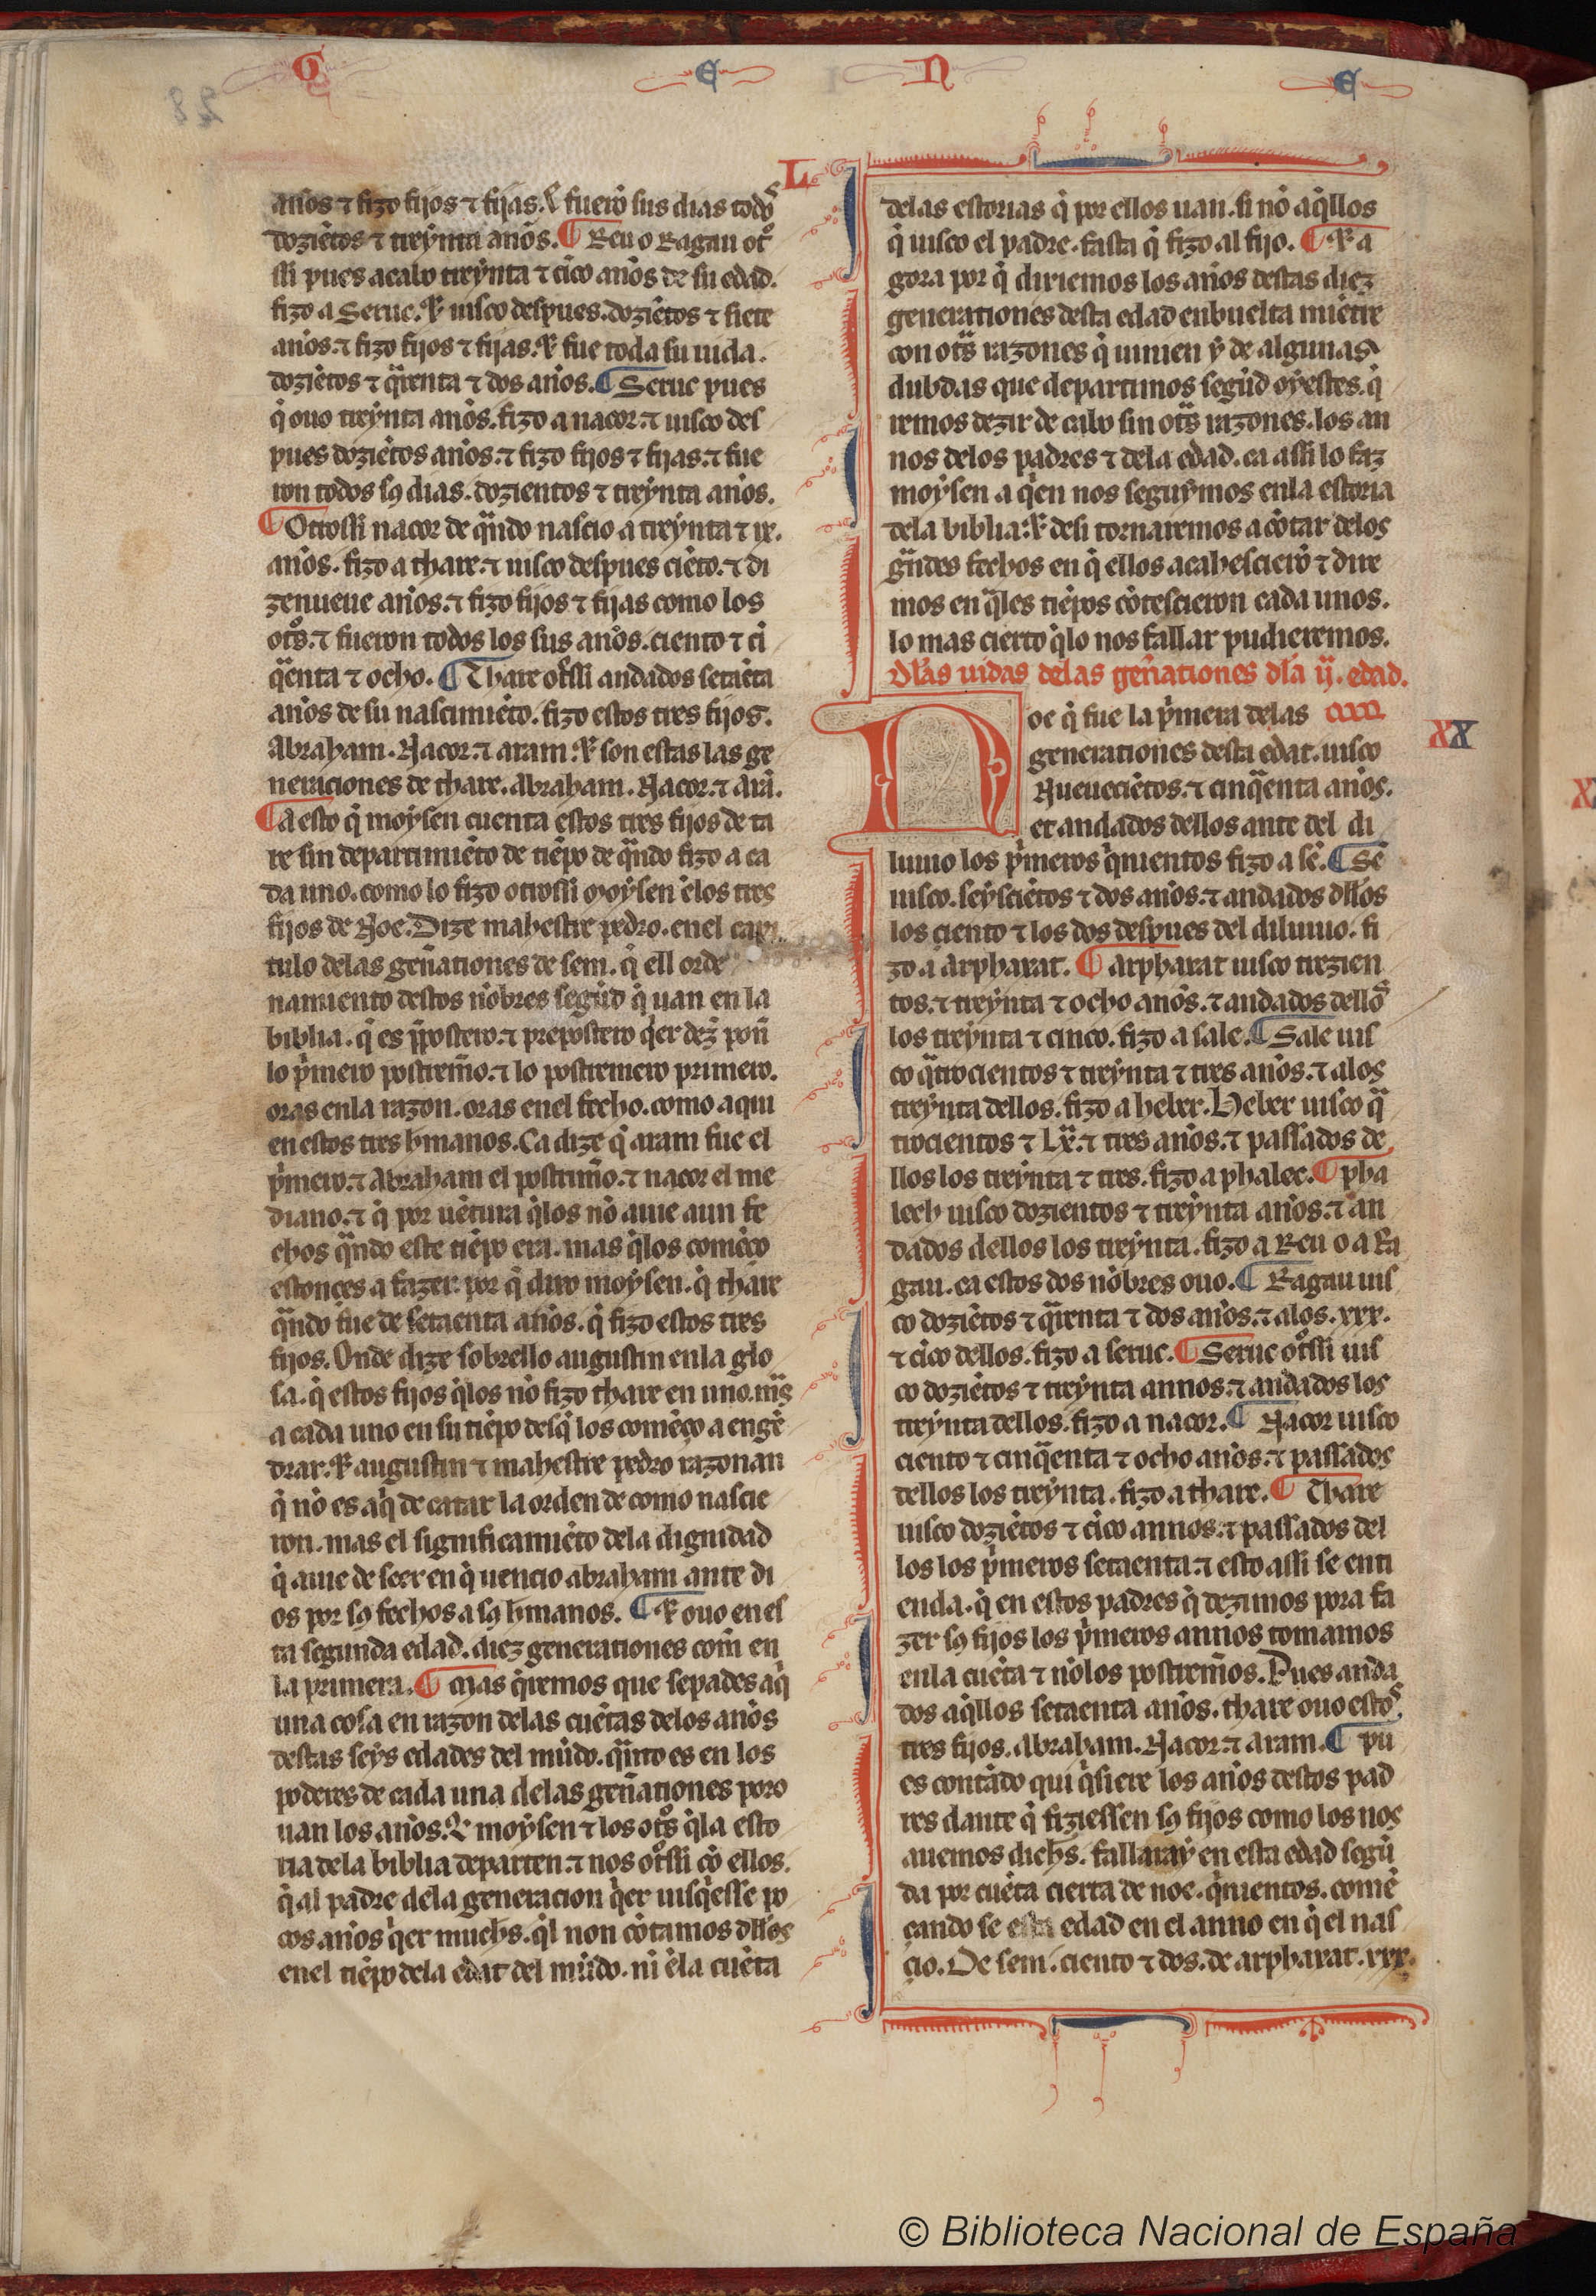 G E N E
L
annos ⁊ fizo fijos ⁊ fijas. ⁊ fuerõ sus dias todos
doziẽtos ⁊ treynta annos. ¶ Reu o Ragau otro
ssi pues acabo treynta ⁊ cĩco annos de su edad.
fizo a Seruc. ⁊ uisco despues. doziẽtos ⁊ siete
annos. ⁊ fizo fijos ⁊ fijas. ⁊ fue toda su uida.
doziẽtos ⁊ qrenta ⁊ dos annos. ¶ Seruc pues
q̃ ouo treynta annos. fizo a nacor. ⁊ uisco des
pues doziẽtos annos. ⁊ fizo fijos ⁊ fijas. ⁊ fue
ron todos sꝯ dias. dozientos ⁊ treynta annos.
¶ Otrossi nacor de qndo nascio a treynta ⁊ ix.
annos. fizo a thare. ⁊ uisco despues ciẽto. ⁊ di
zenueue annos. ⁊ fizo fijos ⁊ fijas como los
otros. ⁊ fueron todos los sus annos. ciento ⁊ ci
qenta ⁊ ocho. ¶ Thare otrssi andados setaẽta
annos de su nascimiẽto. fizo estos tres fijos.
Abraham. Nacor. ⁊ aram. ⁊ son estas las ge
neraciones de thare. Abraham. Nacor. ⁊ Arã.
¶ A esto q̃ moysen cuenta estos tres fijos de ta
re sin departimiẽto de tiẽpo de qndo fizo a ca
da uno. como lo fizo otrossi moysen ẽlos tres
fijos de Noe. Dize mahestre pedro. enel capi
tulo delas geñationes de sem. q̃ ell orde
namiento destos nõbres segũd q̃ uan en la
biblia. q̃ es ppostero. ⁊ prepostero qer dez poñ
lo pmero postremo. ⁊ lo postremero primero.
oras enla razon. oras enel fecho. como aqui
en estos tres hmanos. Ca dize q̃ aram fue el
pmero. ⁊ Abraham el postrimo. ⁊ nacor el me
diano. ⁊ q̃ por uẽtura qlos nõ auie aun fe
chos qndo este tiẽpo era. mas qlos comẽço
estonces a fazer. por q̃ dixo moysen. q̃ thare
qndo fue de setaenta annos. q̃ fizo estos tres
fijos. Onde dize sobrello augustin enla glo
sa. q̃ estos fijos qlos nõ fizo thare en uno. mas
a cada uno en su tiẽpo desq̃ los comẽço a engẽ
drar. ⁊ augustin ⁊ mahestre pedro razonan
q̃ nõ es aq̃ de catar la orden de como nascie
ron. mas el significamiẽto dela dignidad
q̃ auie de seer en q̃ uencio abraham ante di
os por sꝯ fechos a sꝯ hmanos. ¶ ⁊ ouo en es
ta segunda edad. diez generationes com en
la primera. ¶ Mas qremos que sepades aq̃
una cosa en razon delas cuẽtas delos annos
destas seys edades del mũdo. qnto es en los
poderes de cada una delas geñationes poro
uan los annos. ⁊ moysen ⁊ los otros qla esto
ria dela biblia departen. ⁊ nos otrossi cõ ellos.
q̃ al padre dela generacion qer uisqesse po
cos annos qer muchos. ql non cõtamos dllos
enel tiẽpo dela edat del mũdo. ni ẽla cuẽta
delas estorias q̃ por ellos uan. si nõ aqllos
q̃ uisco el padre. fasta q̃ fizo al fijo. ¶ ⁊ a
gora por q̃ diriemos los annos destas diez
generationes desta edad enbuelta miẽtre
con otras razones q̃ uinien y de algunas
dubdas que departimos segũd oyestes. q̃
remos dezir de cabo sin otras razones. los an
nos delos padres ⁊ dela edad. ca assi lo faz
moysen a qen nos seguymos enla estoria
dela biblia: ⁊ desi tornaremos a cõtar delos
grndes fechos en q̃ ellos acahescierõ ⁊ dire
mos en qles tiẽpos cõtescieron cada unos.
lo mas cierto qlo nos fallar pudieremos.
Dlas uidas delas geñationes dla ij. edad.
Noe q̃ fue la pmera delas
generationes desta edat. uisco
XX
Nueueciẽtos. ⁊ cinqenta annos.
et andados dellos ante del di
luuio los pmeros qnientos fizo a sẽ. ¶ Sẽ
uisco. seysciẽtos ⁊ dos annos. ⁊ andados dllos
los ciento ⁊ los dos despues del diluuio. fi
zo a Arphaxat. ¶ Arphaxat uisco trezien
tos. ⁊ treynta ⁊ ocho annos. ⁊ andados dellos
los treynta ⁊ cinco. fizo a sale. ¶ Sale uis
co qtrocientos ⁊ treynta ⁊ tres annos. ⁊ alos
treynta dellos. fizo a heber. Heber uisco qa
trocientos ⁊ Lx. ⁊ tres annos. ⁊ passados de
llos los treynta ⁊ tres. fizo a phalec. ¶ Pha
lech uisco dozientos ⁊ treynta annos. ⁊ an
dados dellos los treynta. fizo a Reu o a Ra
gau. ca estos dos nõbres ouo. ¶ Ragau uis
co doziẽtos ⁊ qrenta ⁊ dos annos. ⁊ alos. xxx.
⁊ cĩco dellos. fizo a seruc. ¶ Seruc otrossi uis
co doziẽtos ⁊ treynta annos. ⁊ andados los
treynta dellos. fizo a nacor. ¶ Nacor uisco
ciento ⁊ cinqenta ⁊ ocho annos. ⁊ passados
dellos los treynta. fizo a thare. ¶ Thare
uisco doziẽtos ⁊ cĩco annos. ⁊ passados del
los los pmeros setaenta. ⁊ esto assi se enti
enda. q̃ en estos padres q̃ dezimos pora fa
zer sꝯ fijos los pmeros annos tomamos
enla cuẽta ⁊ nõlos postremos. Pues anda
dos aqllos setaenta annos. thare ouo estos
tres fijos. Abraham. Nacor. ⁊ aram. ¶ Pu
es contãdo qui qsiere los annos destos pad
res dante q̃ fiziessen sꝯ fijos como los nos
auemos dichos. fallara y en esta edad segũ
da por cuẽta cierta de noe. qnientos. comẽ
çando se esta edad en el anno en q̃ el nas
cio. De sem. ciento ⁊ dos. de arphaxat. xxx.
© Biblioteca Nacional de España